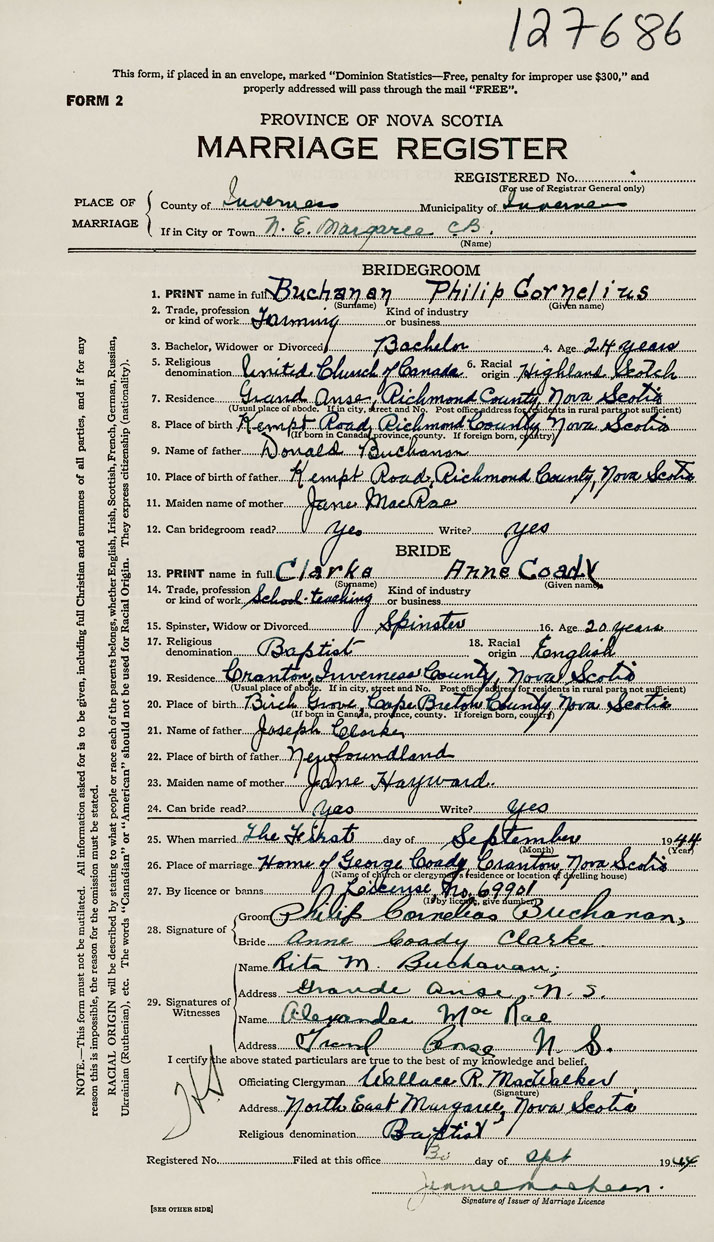 127686
This form, if placed in an envelope, marked "Dominion Statistics—Free, penalty for improper use $300," and
properly addressed will pass through the mail "FREE".
FORM 2
PROVINCE OF NOVA SCOTIA
MARRIAGE REGISTER
REGISTERED No.
(For use of Registrar General only)
PLACE OF MARRIAGE
County of Inverness Municipality of Inverness
If in City or Town N. E. Margaree C.B.
(Name)
BRIDEGROOM
1. PRINT name in full Buchanan Philip Cornelius
(Surname) (Given name)
2. Trade, profession or kind of work Farming Kind of industry or business
3. Bachelor, Widower or Divorced Bachelor 4. Age 24 years
5. Religious denomination United Church of Canada 6. Racial origin Highland Scotch
7. Residence Grand Anse, Richmond County, Nova Scotia
(Usual place of abode. If in city, street and No. Post office address for residents in rural parts not sufficient)
8. Place of birth Kempt Road, Richmond County, Nova Scotia
(If born in Canada, province, county. If foreign born, country)
9. Name of father Donald Buchanan
10. Place of birth of father Kempt Road, Richmond County, Nova Scotia
11. Maiden name of mother Jane MacRae
12. Can bridegroom read? yes Write? yes
BRIDE
13. PRINT name in full Clarke Anne Coady
(Surname) (Given name)
14. Trade, profession or kind of work School-teaching Kind of industry or business
15. Spinster, Widow or Divorced Spinster 16. Age 20 years
17. Religious denomination Baptist 18. Racial origin English
19. Residence Cranton, Inverness County, Nova Scotia
(Usual place of abode. If in city, street and No. Post office address for residents in rural parts not sufficient)
20. Place of birth Birch Grove, Cape Breton County, Nova Scotia
(If born in Canada, province, county. If foreign born, country)
21. Name of father Joseph Clarke
22. Place of birth of father Newfoundland
23. Maiden name of mother Jane Hayward
24. Can bride read? yes Write? yes
25. When married The First day of September 1944
(Month) (Year)
26. Place of marriage Home of George Coady, Cranton, Nova Scotia
(Name of church or clergyman's residence or location of dwelling house)
27. By licence or banns License No. 69901
(If by licence, give number)
28. Signature of
Groom Philip Cornelias Buchanan,
Bride Anne Coady Clarke
29. Signatures of Witnesses
Name Rita M. Buchanan,
Address Grande Anse, N. S.
Name Alexander Mac Rae
Address Anse N. S.
I certify the above stated particulars are true to the best of my knowledge and belief.
Officiating Clergyman Wallace R. MacWalker
(Signature)
Address North East Margaree, Nova Scotia
Religious denomination Baptist
Registered No. Filed at this office day of Spt 1944
Signature of Issuer of Marriage Licence
[SEE OTHER SIDE]
NOTE.—This form must not be mutilated. All information asked for is to be given, including full Christian and surnames of all parties, and if for any
reason this is impossible, the reason for the omission must be stated.
RACIAL ORIGIN will be described by stating to what people or race each of the parents belongs, whether English, Irish, Scottish, French, German, Russian,
Ukrainian (Ruthenian), etc. The words "Canadian" or "American" should not be used for Racial Origin. They express citizenship (nationality).